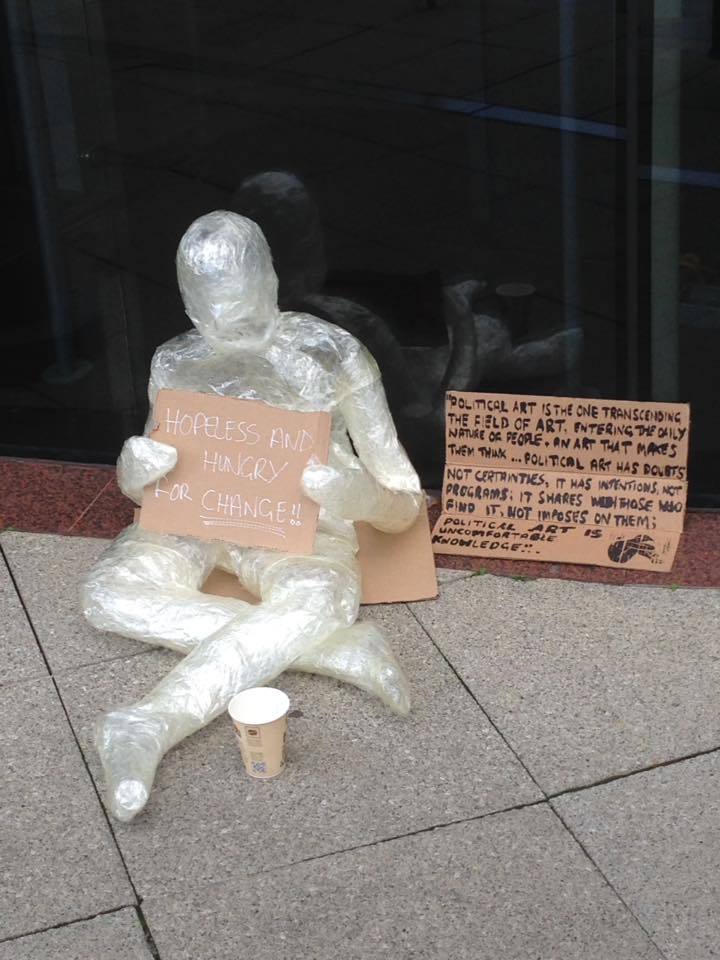 HOPELESS AND
HUNGRY
FOR CHANGE!!
"POLITICAL ART IS THE ONE TRANSCENDING
THE FIELD OF ART, ENTERING THE DAILY
NATURE OF PEOPLE. AN ART THAT MAKES
THEM THINK... POLITICAL ART HAS DOUBTS
NOT CERTAINTIES, IT HAS INTENTIONS, NOT
PROGRAMS; IT SHARES WITH THOSE WHO
FIND IT, NOT IMPOSES ON THEM;
POLITICAL ART IS
UNCOMFORTABLE
KNOWLEDGE"..